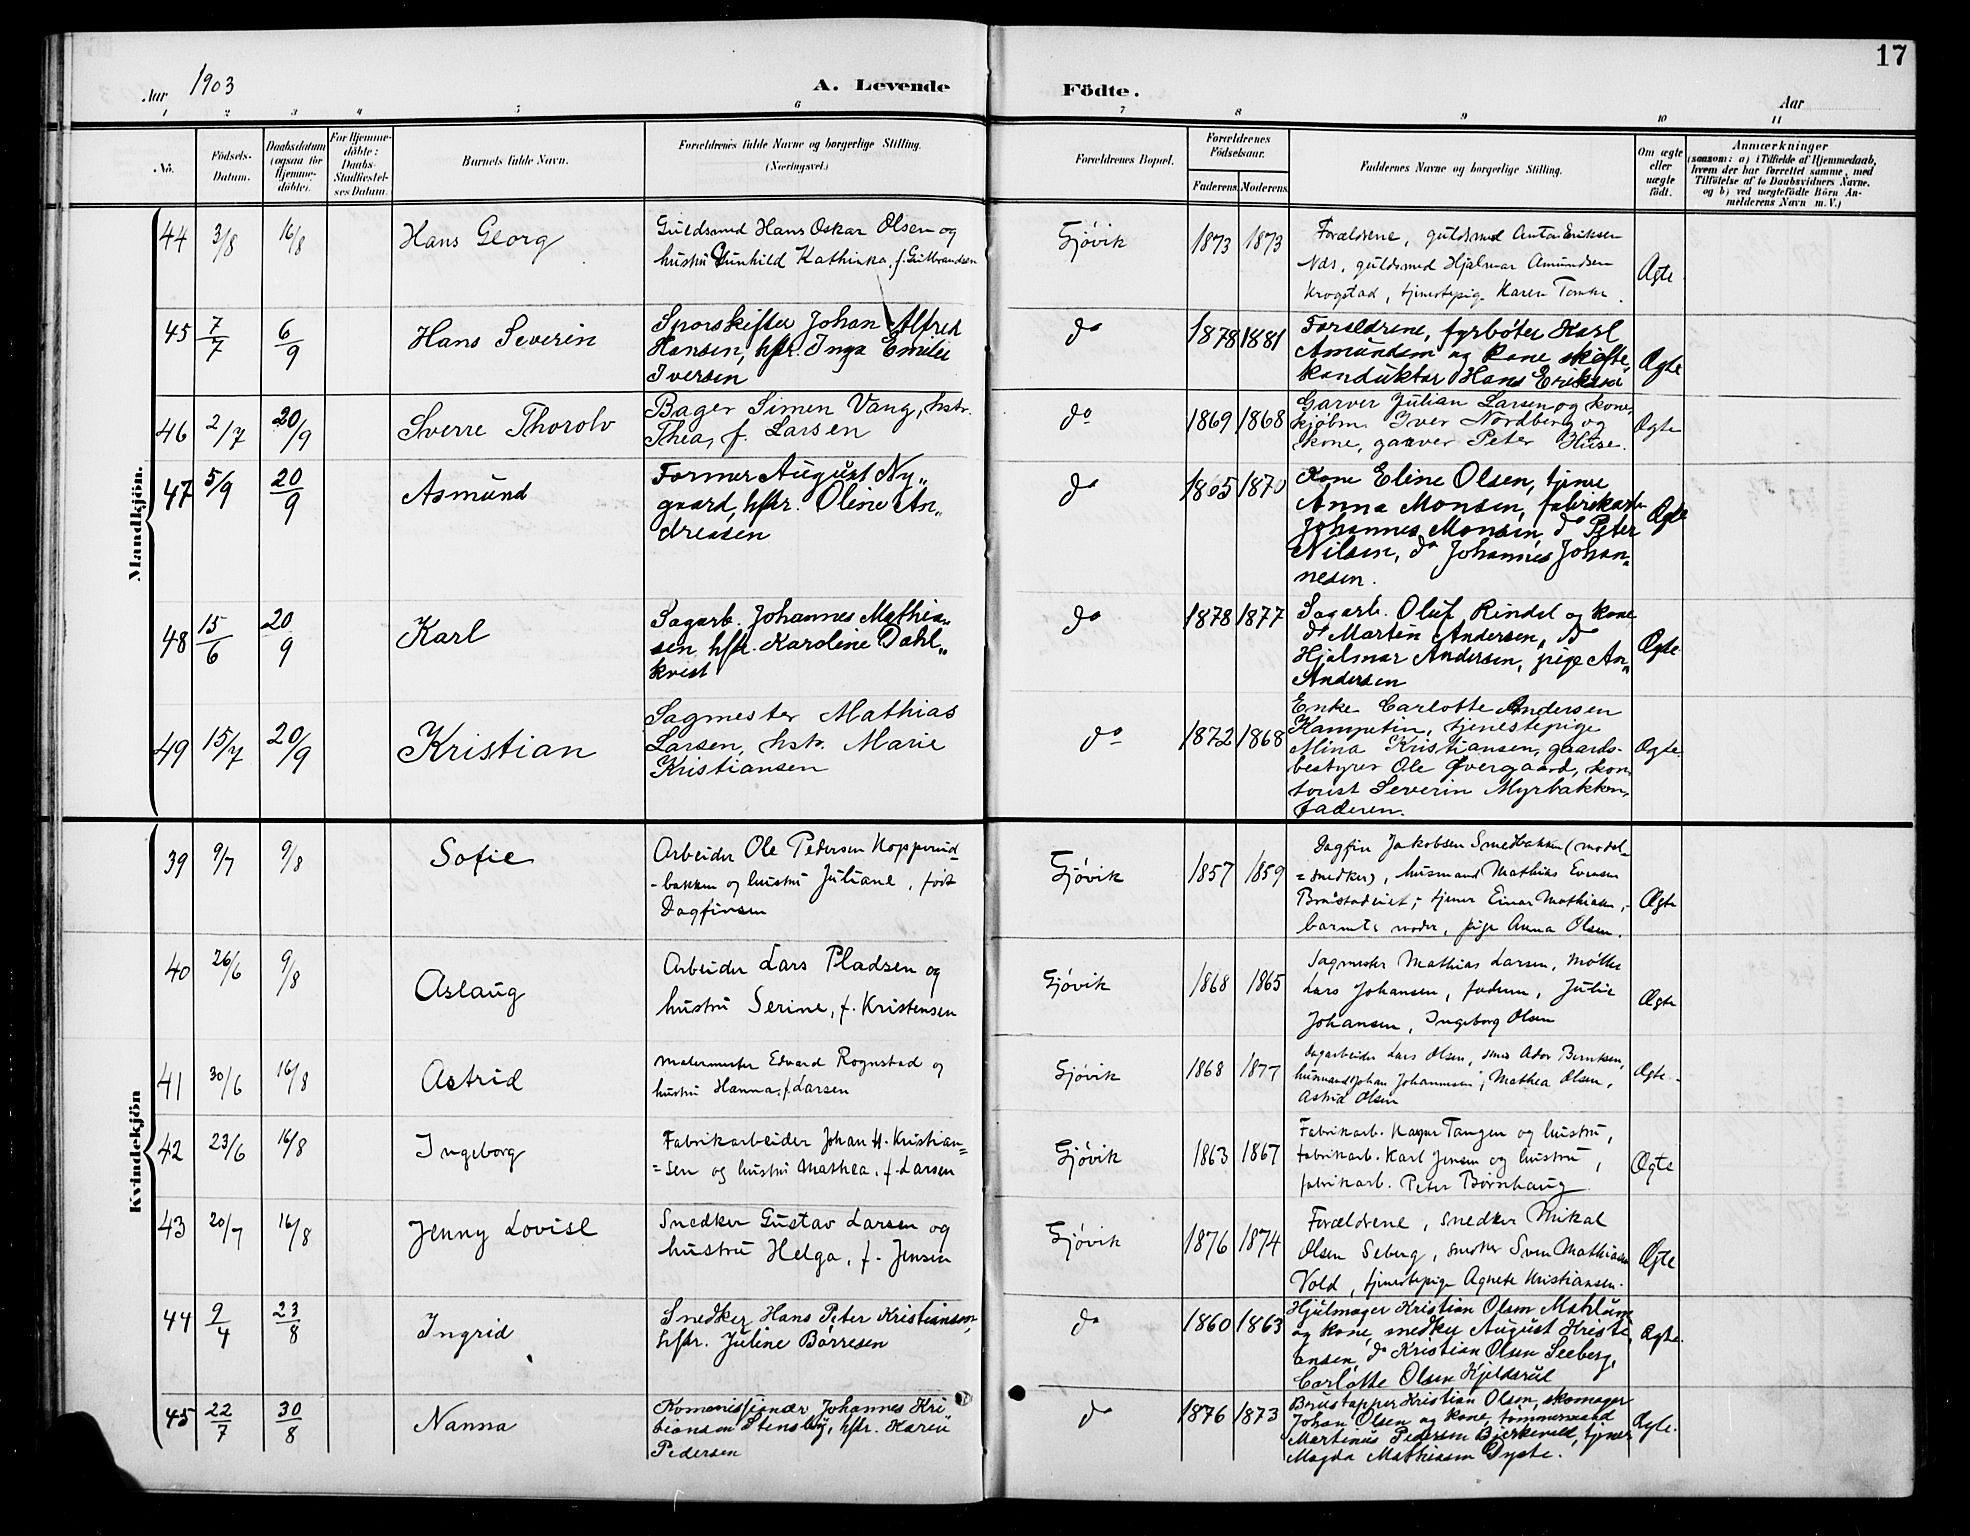 17
Aar 1903
A. Levende Födte.
Aar
1 2 3 4 5 6 7 8 9 10 11
No.
Födsels-Datum.
Daabsdatum (ogsaa for Hjemme-döbte).
For Hjemme-döbte: Daabs-Stadfæstel-ses Datum.
Barnets fulde Navn.
Forældrenes fulde Navne og borgerlige Stilling. (Næringsvei.)
Forældrenes Bopæl.
Forældrenes Födselsaar.
Faderens. Moderens.
Faddernes Navne og borgerlige Stilling.
Om ægte eller uægte födt.
Anmærkninger
(saasom: a) i Tilfælde af Hjemmedaab, hvem der har forrettet samme, med Tilföielse af to Daabsvidners Navne. og b) ved uægtefödte Börn An-melderens Navn m. V.)
Mandkjön.
44 3/8 16/8 Hans Georg
Guldsmed Hans Oskar Olsen og
hustru Gunhild Kathinka, f. Gulbrandsen
Gjövik 1873 1873
Forældrene, guldsmed Anton Eriksen
Næs, guldsmed Hjalmar Amundsen
Krogstad, tjenestepige Karen
Ægte
45 7/7 6/9 Hans Severin
Sporskifter Johan Alfred
Hansen, hstr. Inga Emilie
Iversen
do 1878 1881
Forældrene, fyrböter Karl
Amundsen og kone, skifte
konduktör Hans Eriksen
Ægte
46 2/7 20/9 Sverre Thorolv
Bager Simen Vang, hstr.
Thea, f. Larsen
do 1869 1868
Garver Julian Larsen og kone,
kjöbm. Iver Nordberg og
kone, garver Peter Huse.
Ægte
47 5/9 20/9 Asmund
Former August Ny„
gaard, hstr. Oline An„
dreasen
do 1865 1870
Kone Eline Olsen, tjener
Anna Monsen, fabrikarb
Johannes Monsen, do Peter
Nilsen, do Johannes Johan„
nesen.
Ægte
48 15/6 20/9 Karl
Sagarb. Johannes Mathia„
sen, hstr. Karoline Dahl„
kvist
do 1878 1877
Sagarb. Oluf Rindal og kone
do Martin Andersen, do
Hjalmar Andersen, pige An„
Andersen
Ægte
49 15/7 20/9 Kristian
Sagmester Mathias
Larsen, hstr. Marie
Kristiansen
do 1872 1868
Enke Carlotte Andersen
Kampetin, tjenestepige
Mina Kristiansen, gaards-
bestyrer Ole Övergaard, kon-
torist Severin Myrbakken,
faderen.
Ægte
Kvindekjön
39 9/7 9/8 Sofie
Arbeider Ole Pedersen Hopperud-
-bakken og hustru Juliane, född
Dagfinsen
Gjövik 1857 1859
Dagfin Jakobsen Smedbakken (model-
=snedker), husmand Mathias Evensen
Bråstadeiet, tjener Einar Mathiasen,
barnets moder, pige Anna Olsen.
Ægte
40 26/6 9/8 Aslaug
Arbeider Lars Pladsen og
hustru Serine, f. Kristensen
Gjövik 1868 1865
Sagmester Mathias Larsen, möller
Lars Johansen, faderen, Julie
Johansen, Ingeborg Olsen
Ægte
41 30/6 16/8 Astrid
Malermester Edvard Rognstad og
hustru Hanna, f. Larsen
Gjövik 1868 1877
Dagarbeider Lars Olsen, smed Ador Berntsen,
husmand Johan Johannesen, Mathea Olsen,
Astrid Olsen
Ægte
42 23/6 16/8 Ingeborg
Fabrikarbeider Johan H. Kristian=
=sen og hustru Mathea, f. Larsen
Gjövik 1863 1867
Fabrikarb. Kaspar Tangen og hustru,
fabrikarb. Karl Jensen og hustru,
fabrikarb. Peter Börnhaug
Ægte
43 20/7 16/8 Jenny Lovise
Snedker Gustav Larsen og
hustru Helga, f. Jensen
Gjövik 1876 1874
Forældrene, snedker Mikal
Olsen Seberg, snedker Sven Mathiasen
Vold, tjenestepige Agnete Kristiansen.
Ægte
44 9/4 23/8 Ingrid
Snedker Hans Peter Kristiansen,
hstr. Juline Börresen
do 1860 1863
Hjulmager Kristian Olsen Mæhlum
og kone, snedker August Kristi
ansen, do Kristian Olsen Seeberg,
Carlotte Olsen Kjeldsrud
Ægte
45 22/7 30/8 Nanna
Kommissionær Johannes Kri
stiansen Stensby, hstr. Karen
Pedersen
do 1876 1873
Brustapper Kristian Olsen, skomager
Johan Olsen og kone, tömmermand
Martinus Pedersen Bjerkevold, tjener
Magda Mathiasen Dyste.
Ægte.